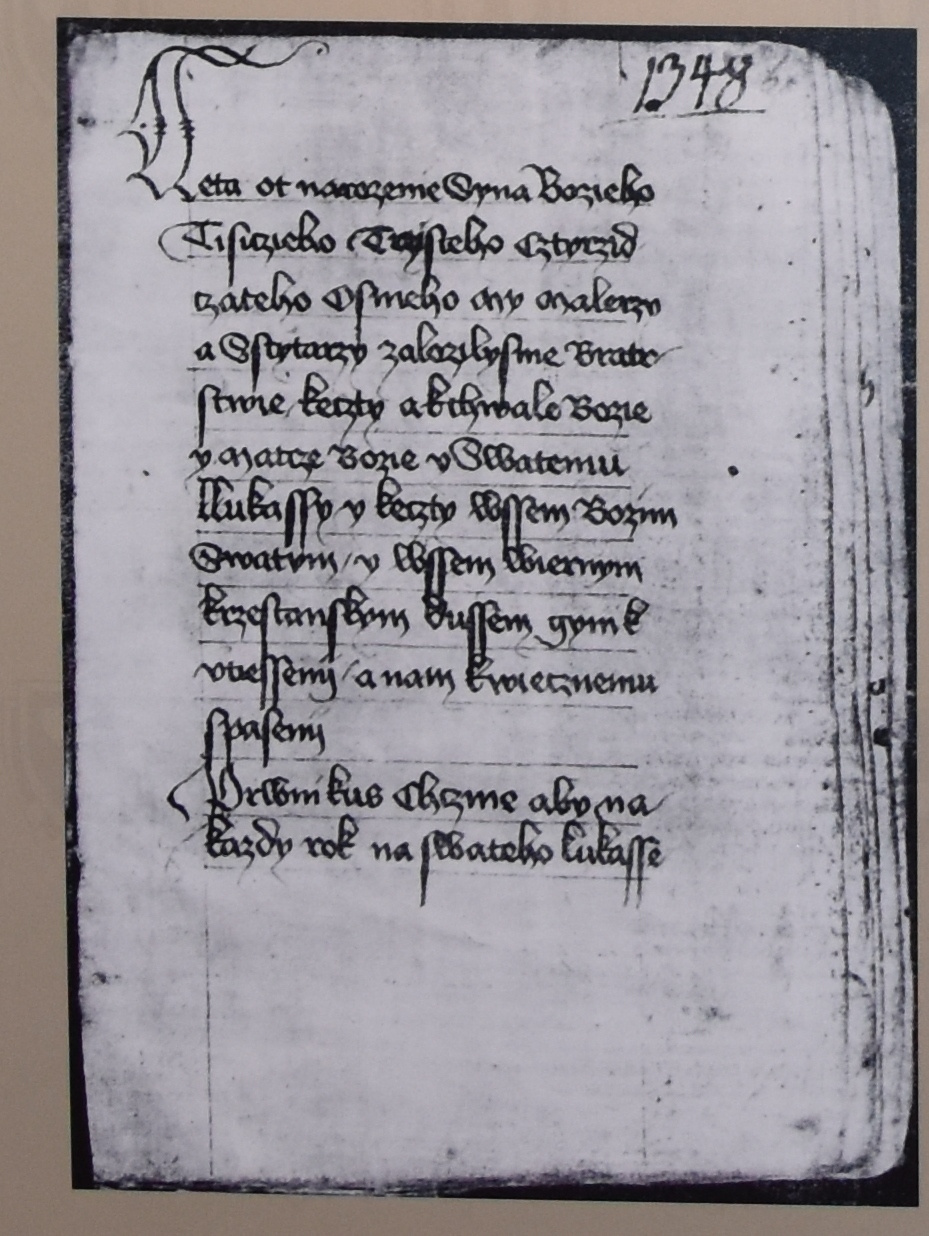 1348
Leta ot narozenie Syna Bozieho
Tisiczieho Trzysteho Cztyrzid
czateho Osmeho my malerzy
a Sstytarzy zalozylysme Bratr
stwie keczty akchwale Bozie
y matcze Bozie y Swatemu
llukassy y keczty wssem Bozim
Swatym / y wssem wiernym
krzestanskym dussem gym k
vtiessenij / a nam kwiecznemu
spasenij
Prwni kus Chczme aby na
kazdy rok na swateho lukasse